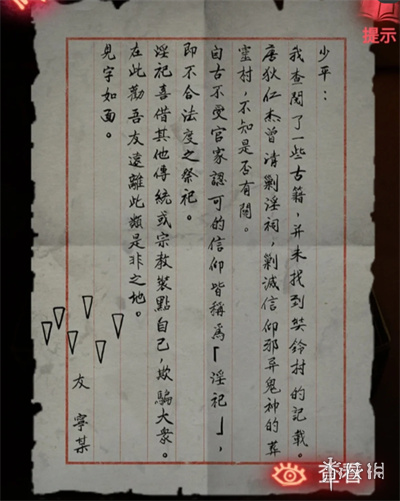 少平：
我查閱了一些古籍，并未找到奘鈴村的記載。
唐狄仁杰曾清剿淫祠，剿滅信仰邪异鬼神的葬
霊村，不知是否有関。
自古不受官家認可的信仰皆稱爲「淫祀」，
即不合法度之祭祀。
淫祀喜借其他傳統或宗教裝點自己，欺騙大衆。
在此勸吾友遠離此類是非之地。
見字如面。
友 寧某
提示
查看